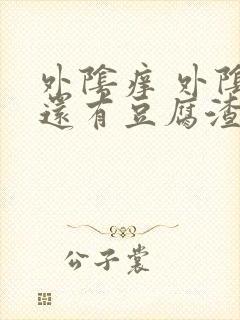 外陰痒 外陰
還有豆腐渣
公子裳